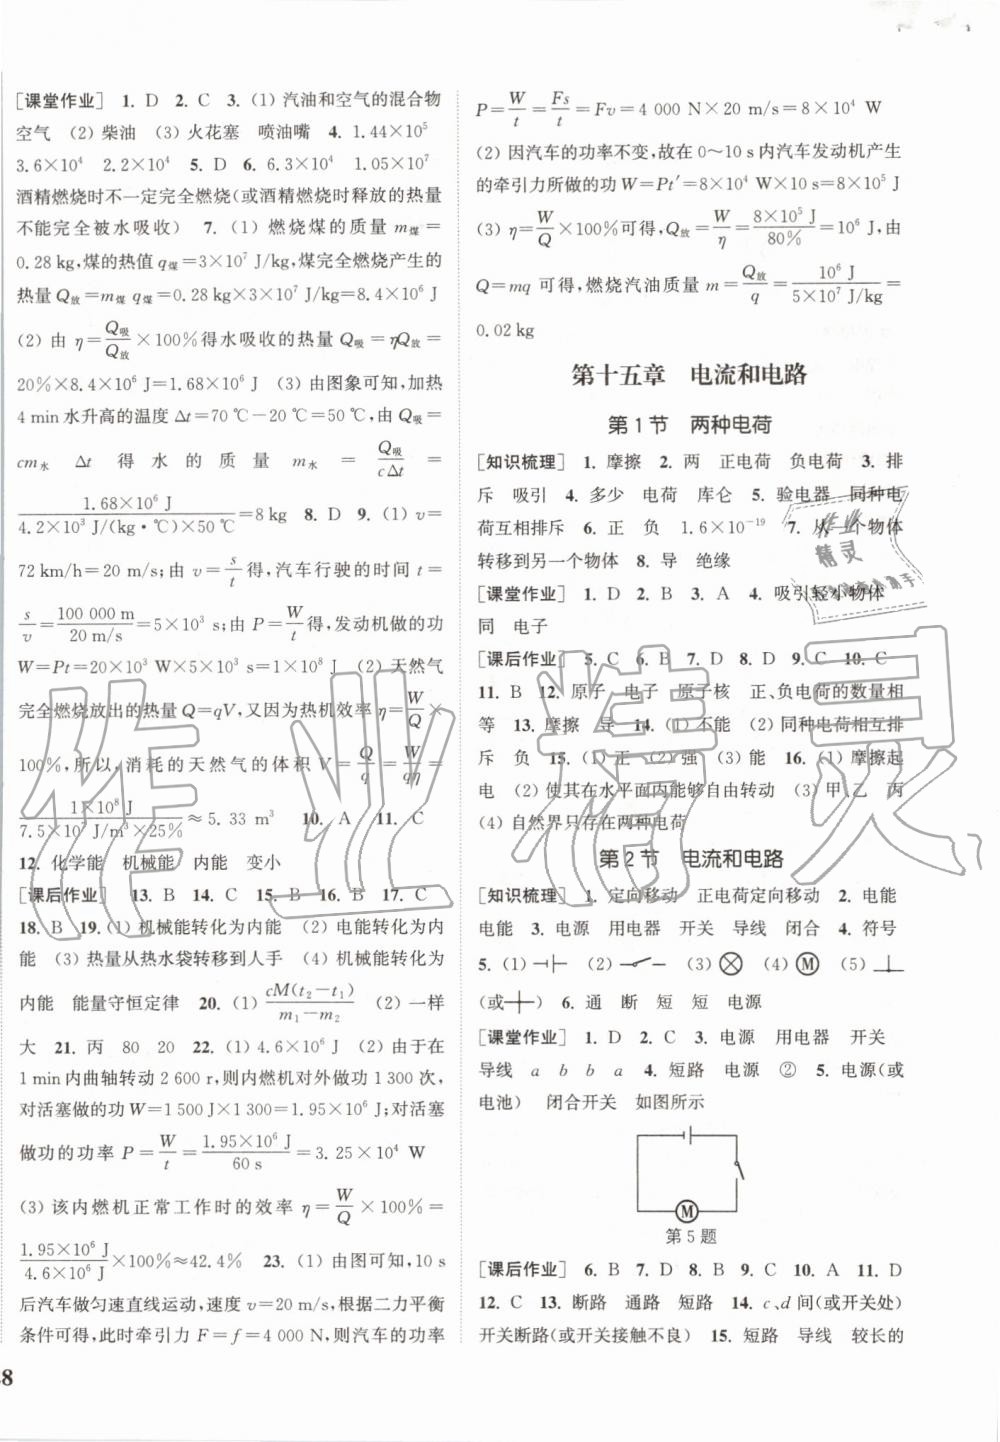 [课堂作业] 1. D 2. C 3. (1) 汽油和空气的混合物
空气 (2) 柴油 (3) 火花塞 喷油嘴 4. 1.44×10⁵
3.6×10⁴ 2.2×10⁴ 5. D 6. 6.3×10⁴ 1.05×10⁷
酒精燃烧时不一定完全燃烧(或酒精燃烧时释放的热量
不能完全被水吸收) 7. (1) 燃烧煤的质量 m煤=
0.28 kg,煤的热值 q煤=3×10⁷ J/kg,煤完全燃烧产生的
热量 Q放=m煤 q煤=0.28 kg×3×10⁷ J/kg=8.4×10⁶ J
(2) 由 η=Q吸/Q放×100%得水吸收的热量 Q吸=ηQ放=
20%×8.4×10⁶ J=1.68×10⁶ J (3) 由图象可知,加热
4 min水升高的温度 Δt=70 ℃-20 ℃=50 ℃,由 Q吸=
cm水 Δt 得水的质量 m水 = Q吸/cΔt =
1.68×10⁶ J/4.2×10³ J/(kg·℃)×50 ℃=8 kg 8. D 9. (1) v=
72 km/h=20 m/s;由 v=s/t得,汽车行驶的时间 t=
s/v=100 000 m/20 m/s=5×10³ s;由 P=W/t得,发动机做的功
W=Pt=20×10³ W×5×10³ s=1×10⁸ J (2) 天然气
完全燃烧放出的热量 Q=qV,又因为热机效率 η=W/Q×
100%,所以,消耗的天然气的体积 V=Q/q=W/qη=
1×10⁸ J/7.5×10⁷ J/m³×25%≈5.33 m³ 10. A 11. C
12. 化学能 机械能 内能 变小
[课后作业] 13. B 14. C 15. B 16. B 17. C
18. B 19. (1) 机械能转化为内能 (2) 电能转化为内
能 (3) 热量从热水袋转移到人手 (4) 机械能转化为
内能 能量守恒定律 20. (1) cM(t₂-t₁)/m₁-m₂ (2) 一样
大 21. 丙 80 20 22. (1) 4.6×10⁶ J (2) 由于在
1 min内曲轴转动 2 600 r,则内燃机对外做功 1 300 次,
对活塞做的功 W=1 500 J×1 300=1.95×10⁶ J;对活塞
做功的功率 P=W/t=1.95×10⁶ J/60 s=3.25×10⁴ W
(3) 该内燃机正常工作时的效率 η=W/Q×100%=
1.95×10⁶ J/4.6×10⁶ J×100%≈42.4% 23. (1) 由图可知,10 s
后汽车做匀速直线运动,速度 v=20 m/s,根据二力平衡
条件可得,此时牵引力 F=f=4 000 N,则汽车的功率
P=W/t=Fs/t=Fv=4 000 N×20 m/s=8×10⁴ W
(2) 因汽车的功率不变,故在 0~10 s内汽车发动机产生
的牵引力所做的功 W=Pt′=8×10⁴ W×10 s=8×10⁵ J
(3) η=W/Q×100%可得,Q放=W/η=8×10⁵ J/80%=10⁶ J,由
Q=mq 可得,燃烧汽油质量 m=Q放/q=10⁶ J/5×10⁷ J/kg=
0.02 kg
第十五章 电流和电路
第1节 两种电荷
[知识梳理] 1. 摩擦 2. 两 正电荷 负电荷 3. 排
斥 吸引 4. 多少 电荷 库仑 5. 验电器 同种电
荷互相排斥 6. 正 负 1.6×10⁻¹⁹ 7. 从一个物体
转移到另一个物体 8. 导 绝缘
[课堂作业] 1. D 2. B 3. A 4. 吸引轻小物体
同 电子
[课后作业] 5. C 6. B 7. D 8. D 9. C 10. C
11. B 12. 原子 电子 原子核 正、负电荷的数量相
等 13. 摩擦 导 14. (1) 不能 (2) 同种电荷相互排
斥 负 15. (1) 正 (2) 强 (3) 能 16. (1) 摩擦起
电 (2) 使其在水平面内能够自由转动 (3) 甲、乙 丙
(4) 自然界只存在两种电荷
第2节 电流和电路
[知识梳理] 1. 定向移动 正电荷定向移动 2. 电能
电能 3. 电源 用电器 开关 导线 闭合 4. 符号
5. (1) (2) (3) (4) M (5)
(或) 6. 通 断 短 短 电源
[课堂作业] 1. D 2. C 3. 电源 用电器 开关
导线 a b b a 4. 短路 电源 ② 5. 电源(或
电池) 闭合开关 如图所示
M
第5题
[课后作业] 6. B 7. D 8. B 9. C 10. A 11. D
12. C 13. 断路 通路 短路 14. c、d 间(或开关处)
开关断路(或开关接触不良) 15. 短路 导线 较长的
作业精灵
作业
精灵